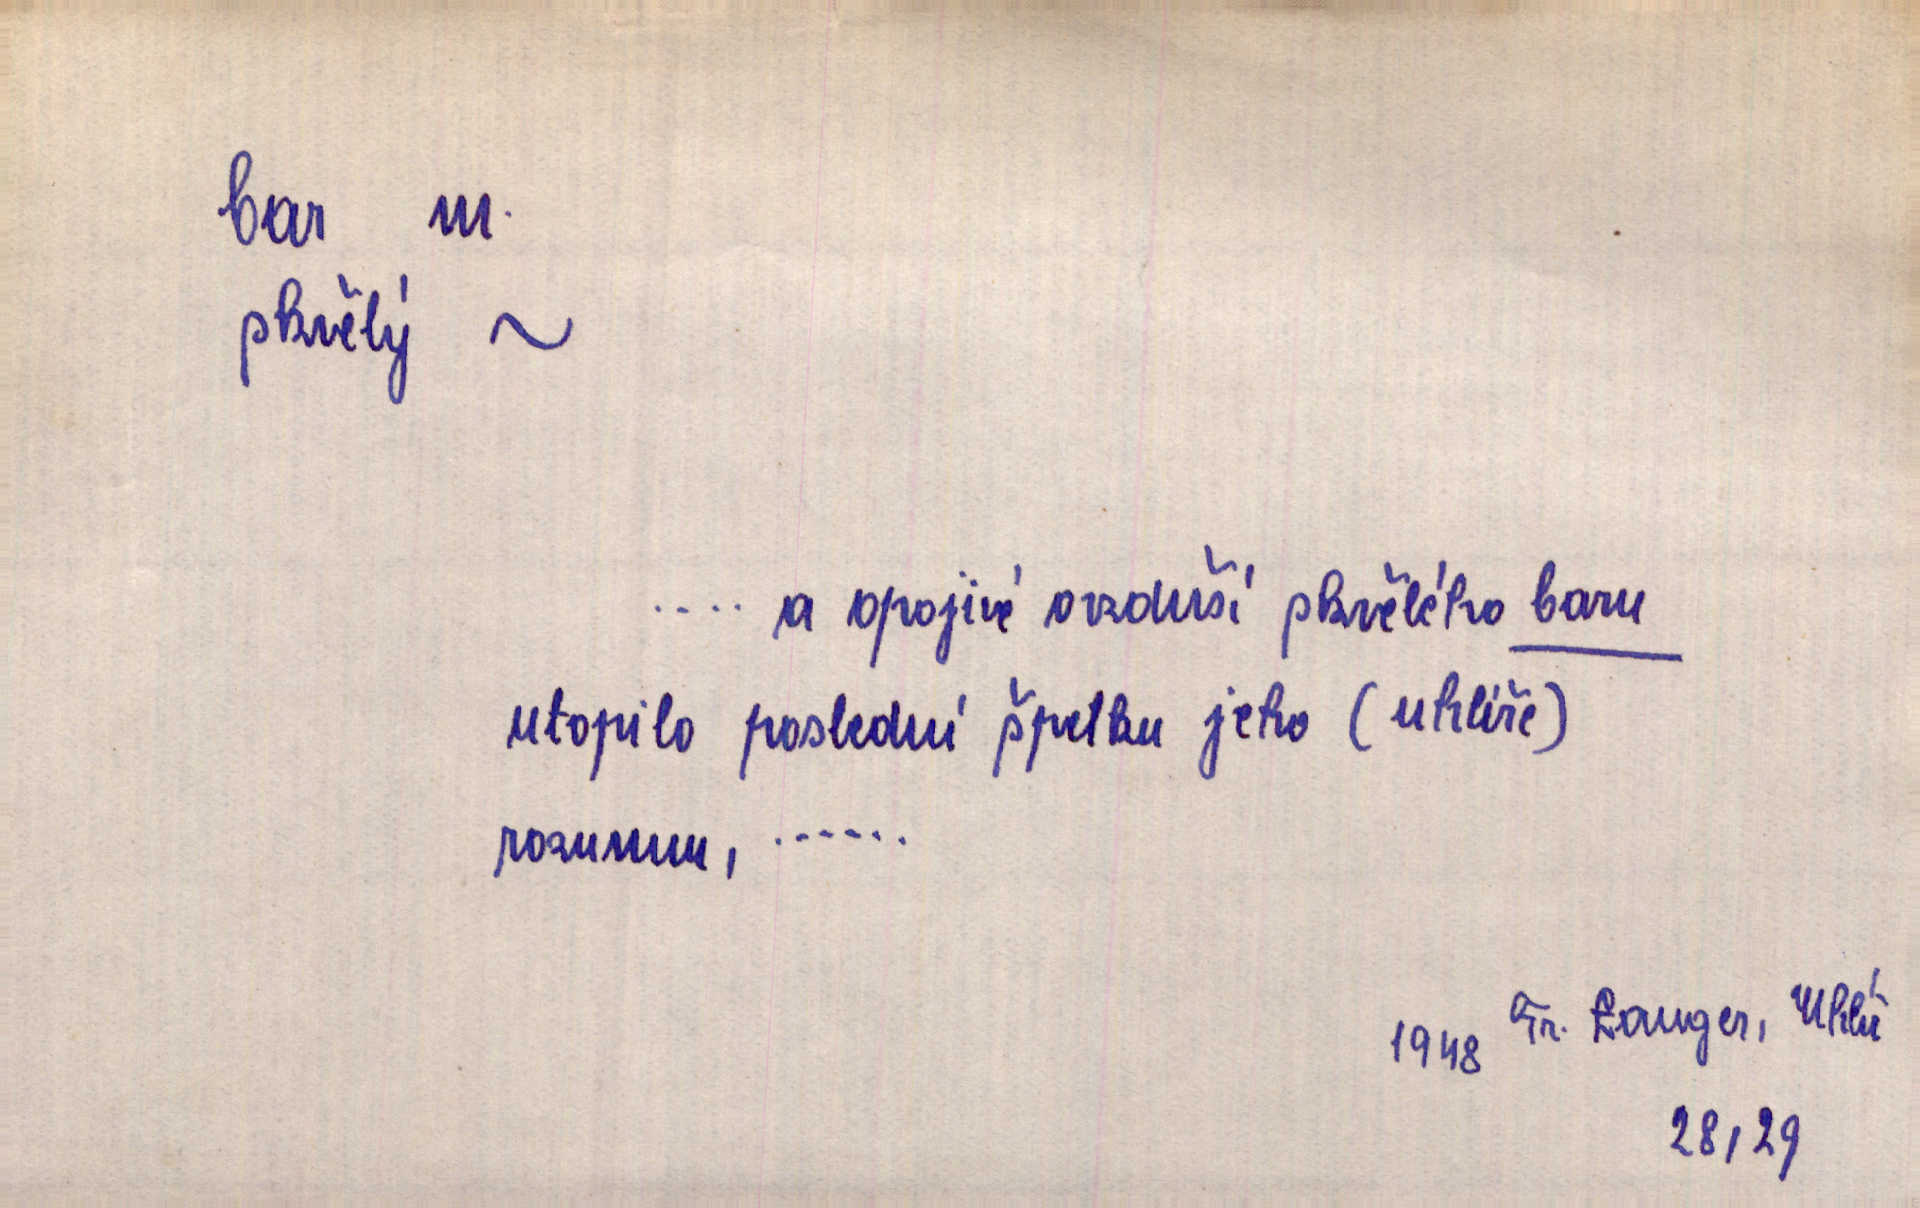 bar m.
skvělý ~
.... a opojivé ovzduší skvělého baru
utopilo poslední špetku jeho (uhlíře)
rozumu, ......
1948 Fr. Langer, Uhlíř
28, 29